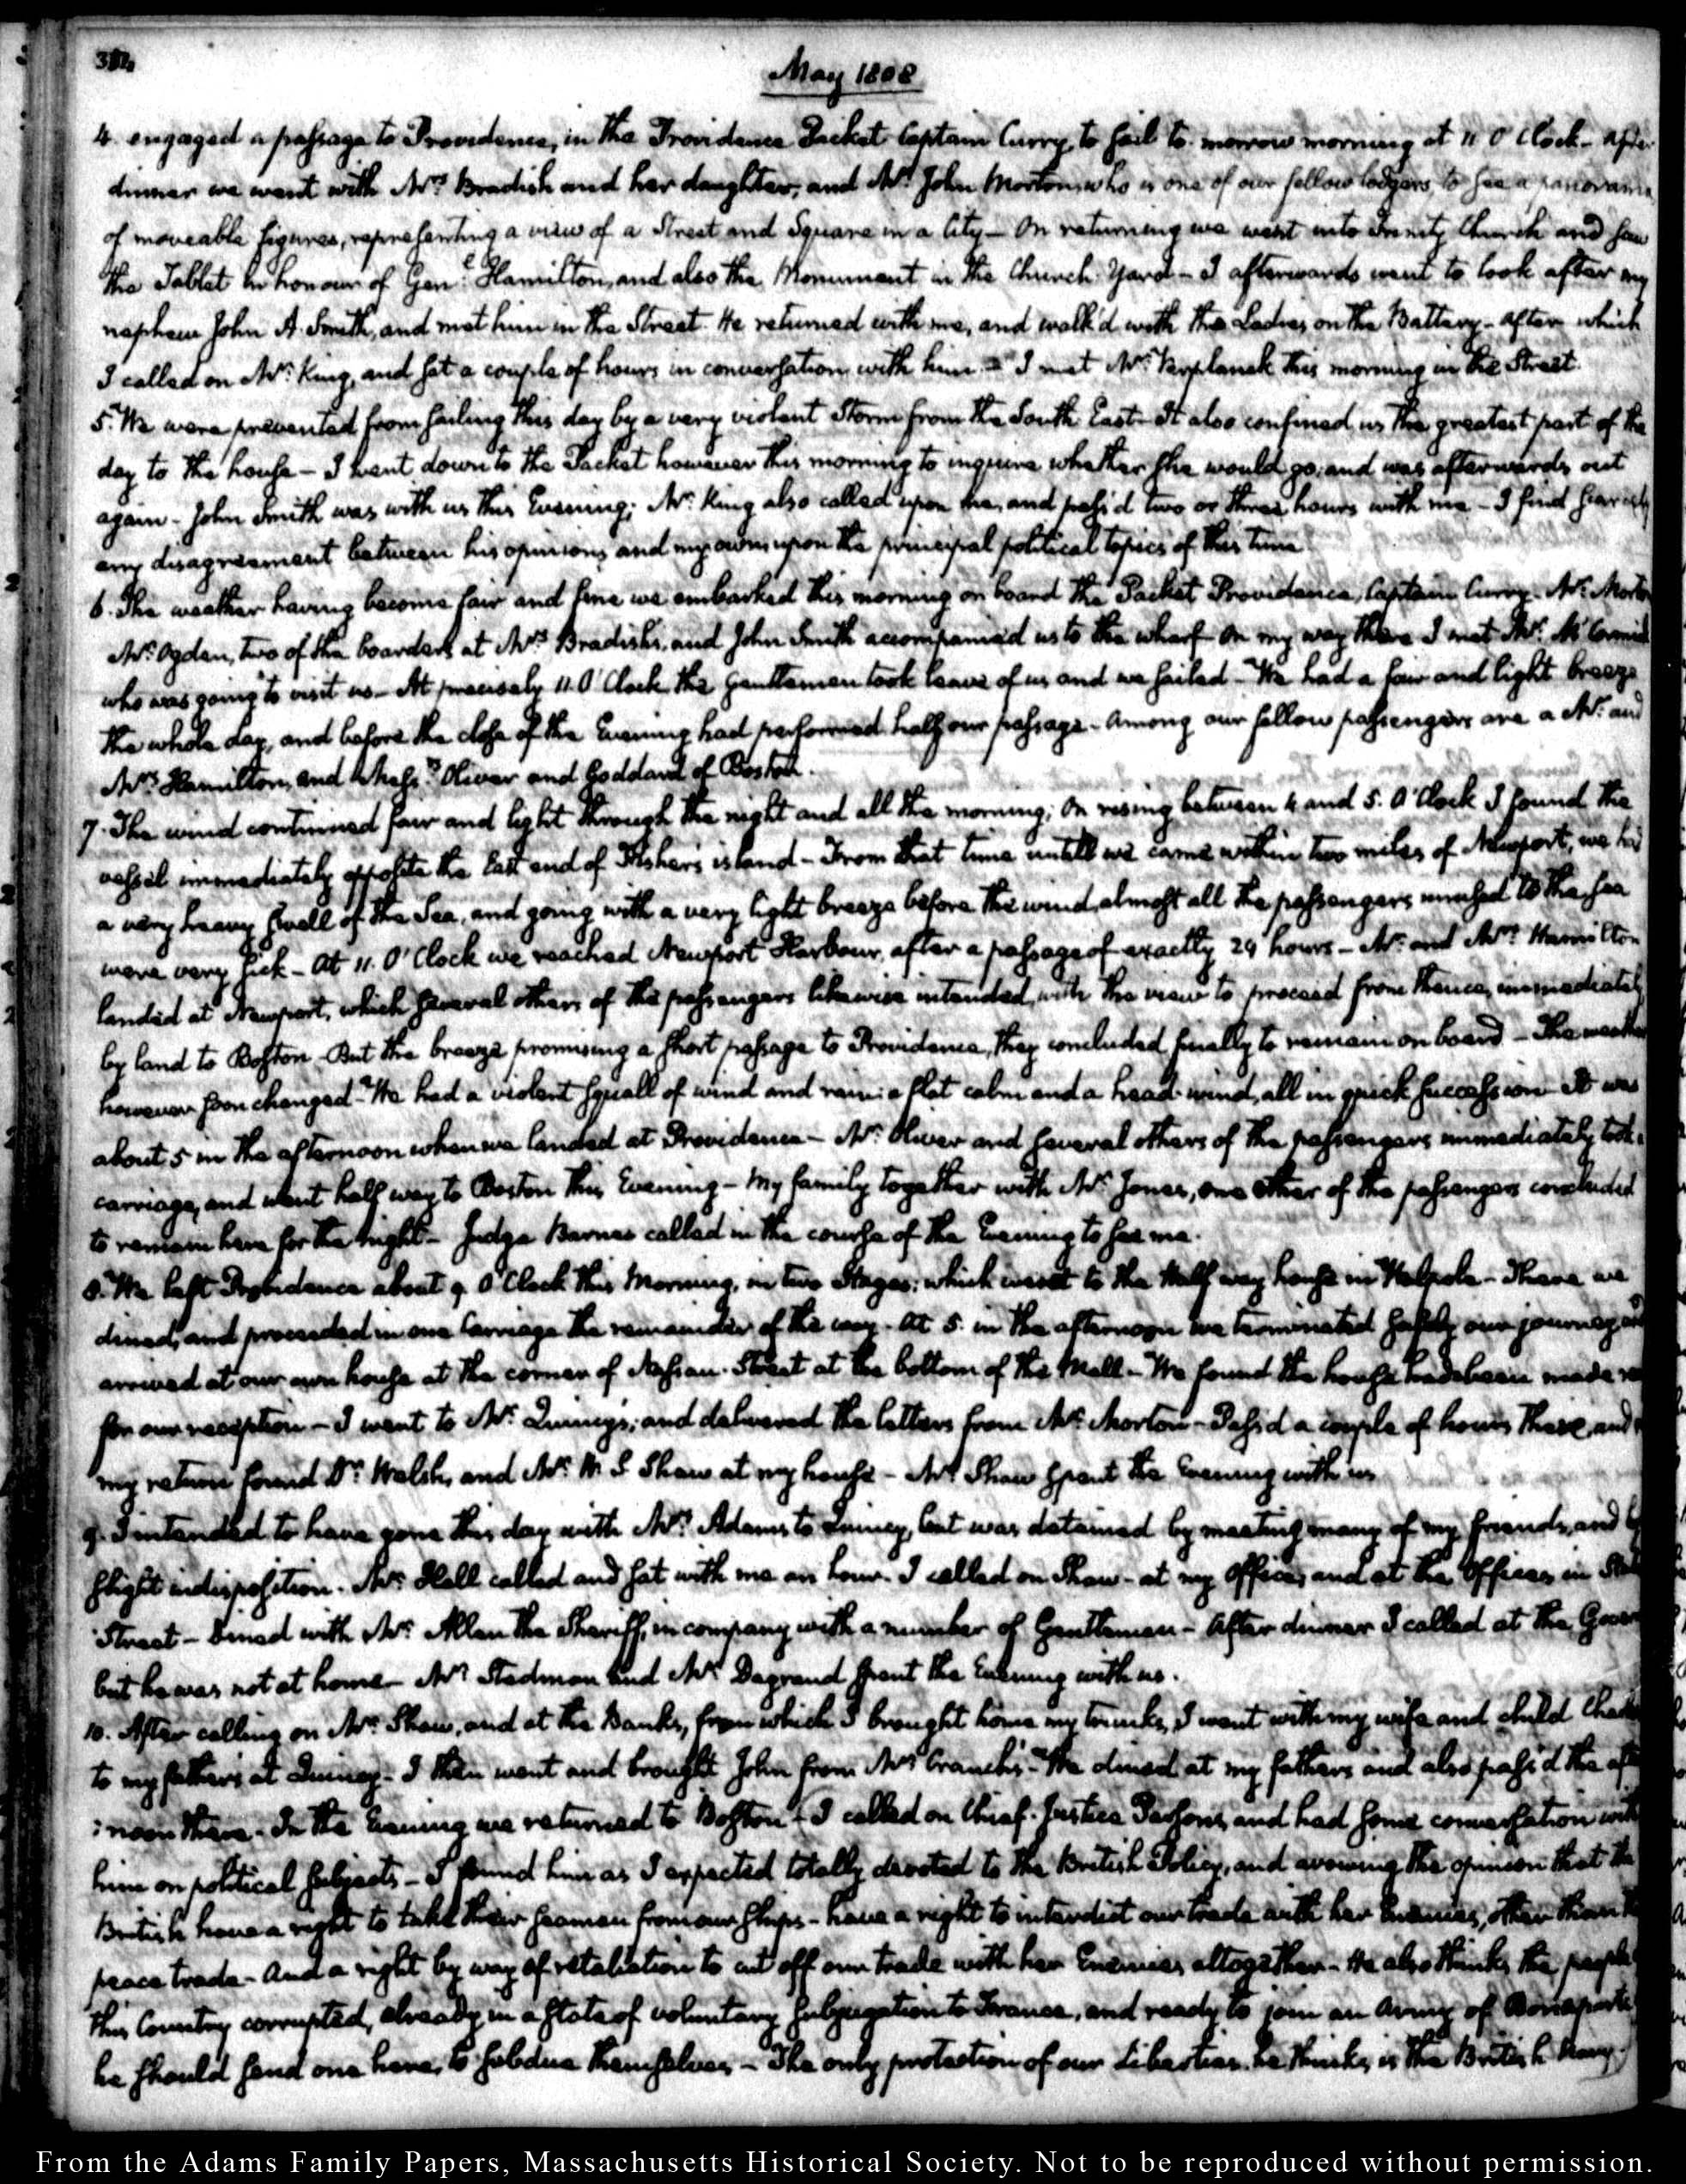 May 1808
4. engaged a passage to Providence, in the Providence Packet Captain Curry, to sail to-morrow morning at 11 O'Clock - After
dinner we went with Mrs. Bradish and her daughter, and Mr. John Morton, who is one of our fellow lodgers, to see a panorama
of moveable figures, representing a view of a Street and Square in a City - On returning we went into Trinity Church and saw
the Tablet in honour of Genl. Hamilton, and also the Monument in the Church Yard - I afterwards went to look after my
nephew John A. Smith, and met him in the Street. He returned with me, and walk'd with the Ladies on the Battery - After which
I called on Mr. King, and sat a couple of hours in conversation with him - I met Mr. Verplanck this morning in the Street.
5. We were prevented from sailing this day by a very violent Storm from the South East - It also confined us the greatest part of the
day to the house - I went down to the Packet however this morning to inquire whether she would go, and was afterwards out
again - John Smith was with us this Evening; Mr. King also called upon me, and pass'd two or three hours with me - I find scarcely
any disagreement between his opinions, and my own upon the principal political topics of this time.
6. The weather having become fair and fine we embarked this morning on board the Packet Providence, Captain Curry. Mr. Morton
Mr. Ogden, two of the boarders at Mrs. Bradish's, and John Smith accompanied us to the wharf - On my way there I met Mr. McCormick
who was going to visit us - At precisely 11. O'Clock the gentlemen took leave of us and we sailed - We had a fair and light breeze
the whole day, and before the close of the Evening had performed half our passage - Among our fellow passengers are a Mr. and
Mrs. Hamilton, and Messrs. Oliver and Goddard of Boston.
7. The wind continued fair and light through the night and all the morning; On rising between 4 and 5. O'Clock I found the
vessel immediately opposite the East end of Fisher's island - From that time until we came within two miles of Newport, we had
a very heavy swell of the Sea, and going with a very light breeze before the wind, almost all the passengers unused to the sea
were very sick - At 11. O'Clock we reached Newport Harbour, after a passage of exactly 24 hours - Mr. and Mrs. Hamilton
landed at Newport, which several others of the passengers likewise intended, with the view to proceed from thence, immediately
by land to Boston - But the breeze promising a short passage to Providence, they concluded finally to remain on board - The weather
however soon changed - We had a violent squall of wind and rain: a flat calm and a head-wind, all in quick succession - It was
about 5 in the afternoon when we landed at Providence - Mr. Oliver and several others of the passengers immediately took
carriage, and went half way to Boston this Evening - My family together with Mr. Jones, one other of the passengers concluded
to remain here for the night - Judge Barnes called in the course of the Evening to see me.
8. We left Providence about 9. O'Clock this Morning, in two Stages; which went to the Half way house in Walpole - There we
dined, and proceeded in one Carriage the remainder of the way. At 5. in the afternoon we terminated safely our journey and
arrived at our own house at the corner of Nassau-Street at the bottom of the Mall - We found the house had been made
for our reception - I went to Mr. Quincy's; and delivered the letters from Mr. Morton - Pass'd a couple of hours there and
my return found Dr. Welsh, and Mr. W. S. Shaw at my house - Mr. Shaw spent the Evening with us.
9. I intended to have gone this day with Mrs. Adams to Quincy, but was detained by meeting many of my friends, and
slight indisposition. Mr. Hall called and sat with me an hour. I called on Shaw - at my Office, and at the Offices in State
Street - Dined with Mr. Allen the Sheriff, in company with a number of Gentlemen - After dinner I called at the
but he was not at home - Mr. Stedman and Mr. Degrand spent the Evening with us.
10. After calling on Mr. Shaw, and at the Banks, from which I brought home my trunks, I went with my wife and child
to my father's at Quincy - I then went and brought John from Mrs. Cranch's - We dined at my father's and also pass'd the after
:noon there - In the Evening we returned to Boston - I called on Chief-Justice Parsons, and had some conversation with
him on political subjects - I found him as I expected totally devoted to the British Policy, and avowing the opinion that the
British have a right to take their seamen from our ships - have a right to interdict our trade with her Enemies, other than
peace trade - And a right by way of retaliation to cut off our trade with her Enemies altogether - He also thinks the people
this Country corrupted, already in a state of voluntary subjugation to France, and ready to join an Army of Bonaparte
he should send one here, to subdue themselves - The only protection of our Liberties he thinks, is the British Navy.
From the Adams Family Papers, Massachusetts Historical Society. Not to be reproduced without permission.